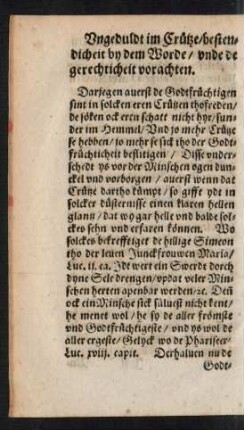 Vngeduldt im Crütze/besten-
dicheit by dem Worde/ vnde de
gerechticheit vorachten.
Darjegen auerst de Godtfrüchtigen
sint in solcken eren Crützen thofreden/
de söken ock eren schatt nicht hyr/sun-
der im Hemmel/ Vnd jo mehr Crütze
se hebben/ jo mehr se sick tho der Godt-
früchticheit beflitigen / Disse vnder-
schedt ys vor der Minschen ogen dun-
ckel vnd vorborgen / auerst wenn dat
Crütze dartho kümpt/ so gifft ydt in
solcker düsternisse einen klaren hellen
glantz/ dat wy gar helle vnd balde sol-
ckes sehn vnd erfaren können. Wo
solckes bekrefftiget de hillige Simeon
tho der leuen Junckfrouwen Maria/
Luc. ij. ca. Idt wert ein Swerdt dorch
dyne Sele drengen/vppat veler Min-
schen herten apenbar werden/ꝛc. Deñ
ock ein Minsche sick süluest nicht kent/
he menet wol/ he sy de aller frömste
vnd Godtfrüchtigeste/ vnd ys wol de
aller ergeste/ Gelyck wo de Phariseer/
Luc. xviij. capit. Derhaluen nu de
Godt-